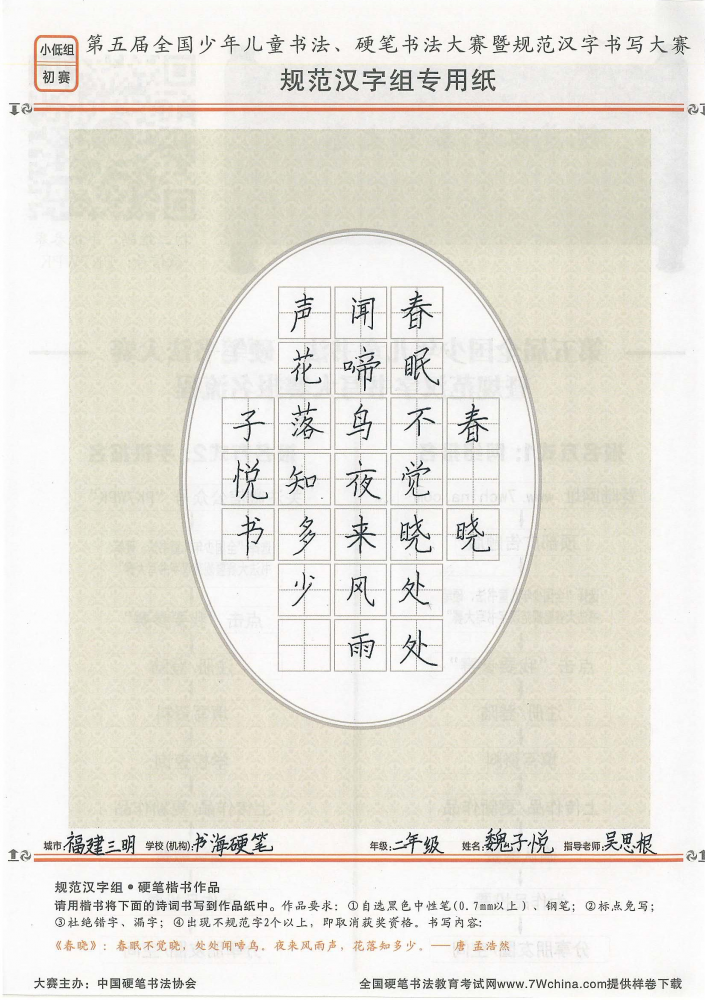 小低组
初赛
第五届全国少年儿童书法、硬笔书法大赛暨规范汉字书写大赛
规范汉字组专用纸
春晓
春眠不觉晓处处
闻啼鸟夜来风雨
声花落知多少
子悦书
城市:福建三明 学校(机构):书海硬笔 年级:二年级 姓名:魏子悦 指导老师:吴思根
规范汉字组●硬笔楷书作品
请用楷书将下面的诗词书写到作品纸中。作品要求：①自选黑色中性笔(0.7mm以上)、钢笔；②标点免写；
③杜绝错字、漏字；④出现不规范字2个以上，即取消获奖资格。书写内容：
《春晓》：春眠不觉晓，处处闻啼鸟。夜来风雨声，花落知多少。——唐 孟浩然
大赛主办：中国硬笔书法协会
全国硬笔书法教育考试网www.7Wchina.com提供样卷下载